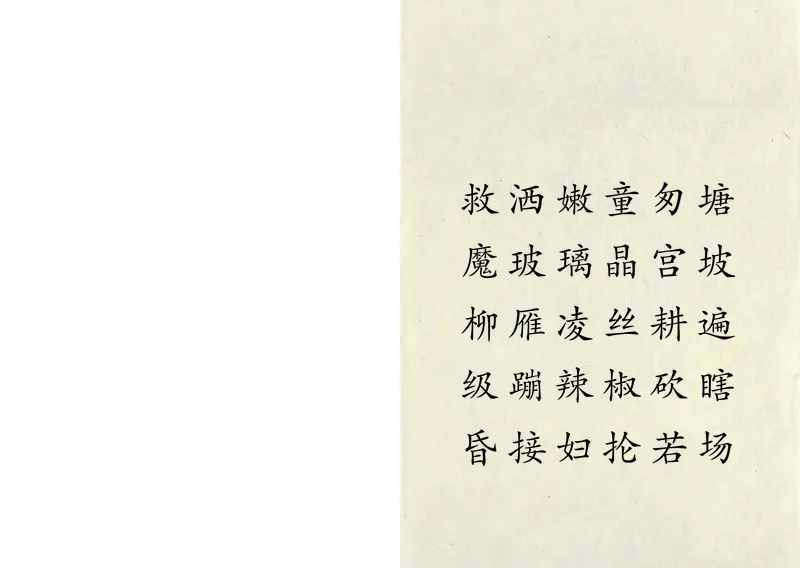 救洒嫩童匆塘
魔玻璃晶宫坡
柳雁凌丝耕遍
级蹦辣椒砍瞎
昏接妇抡若场